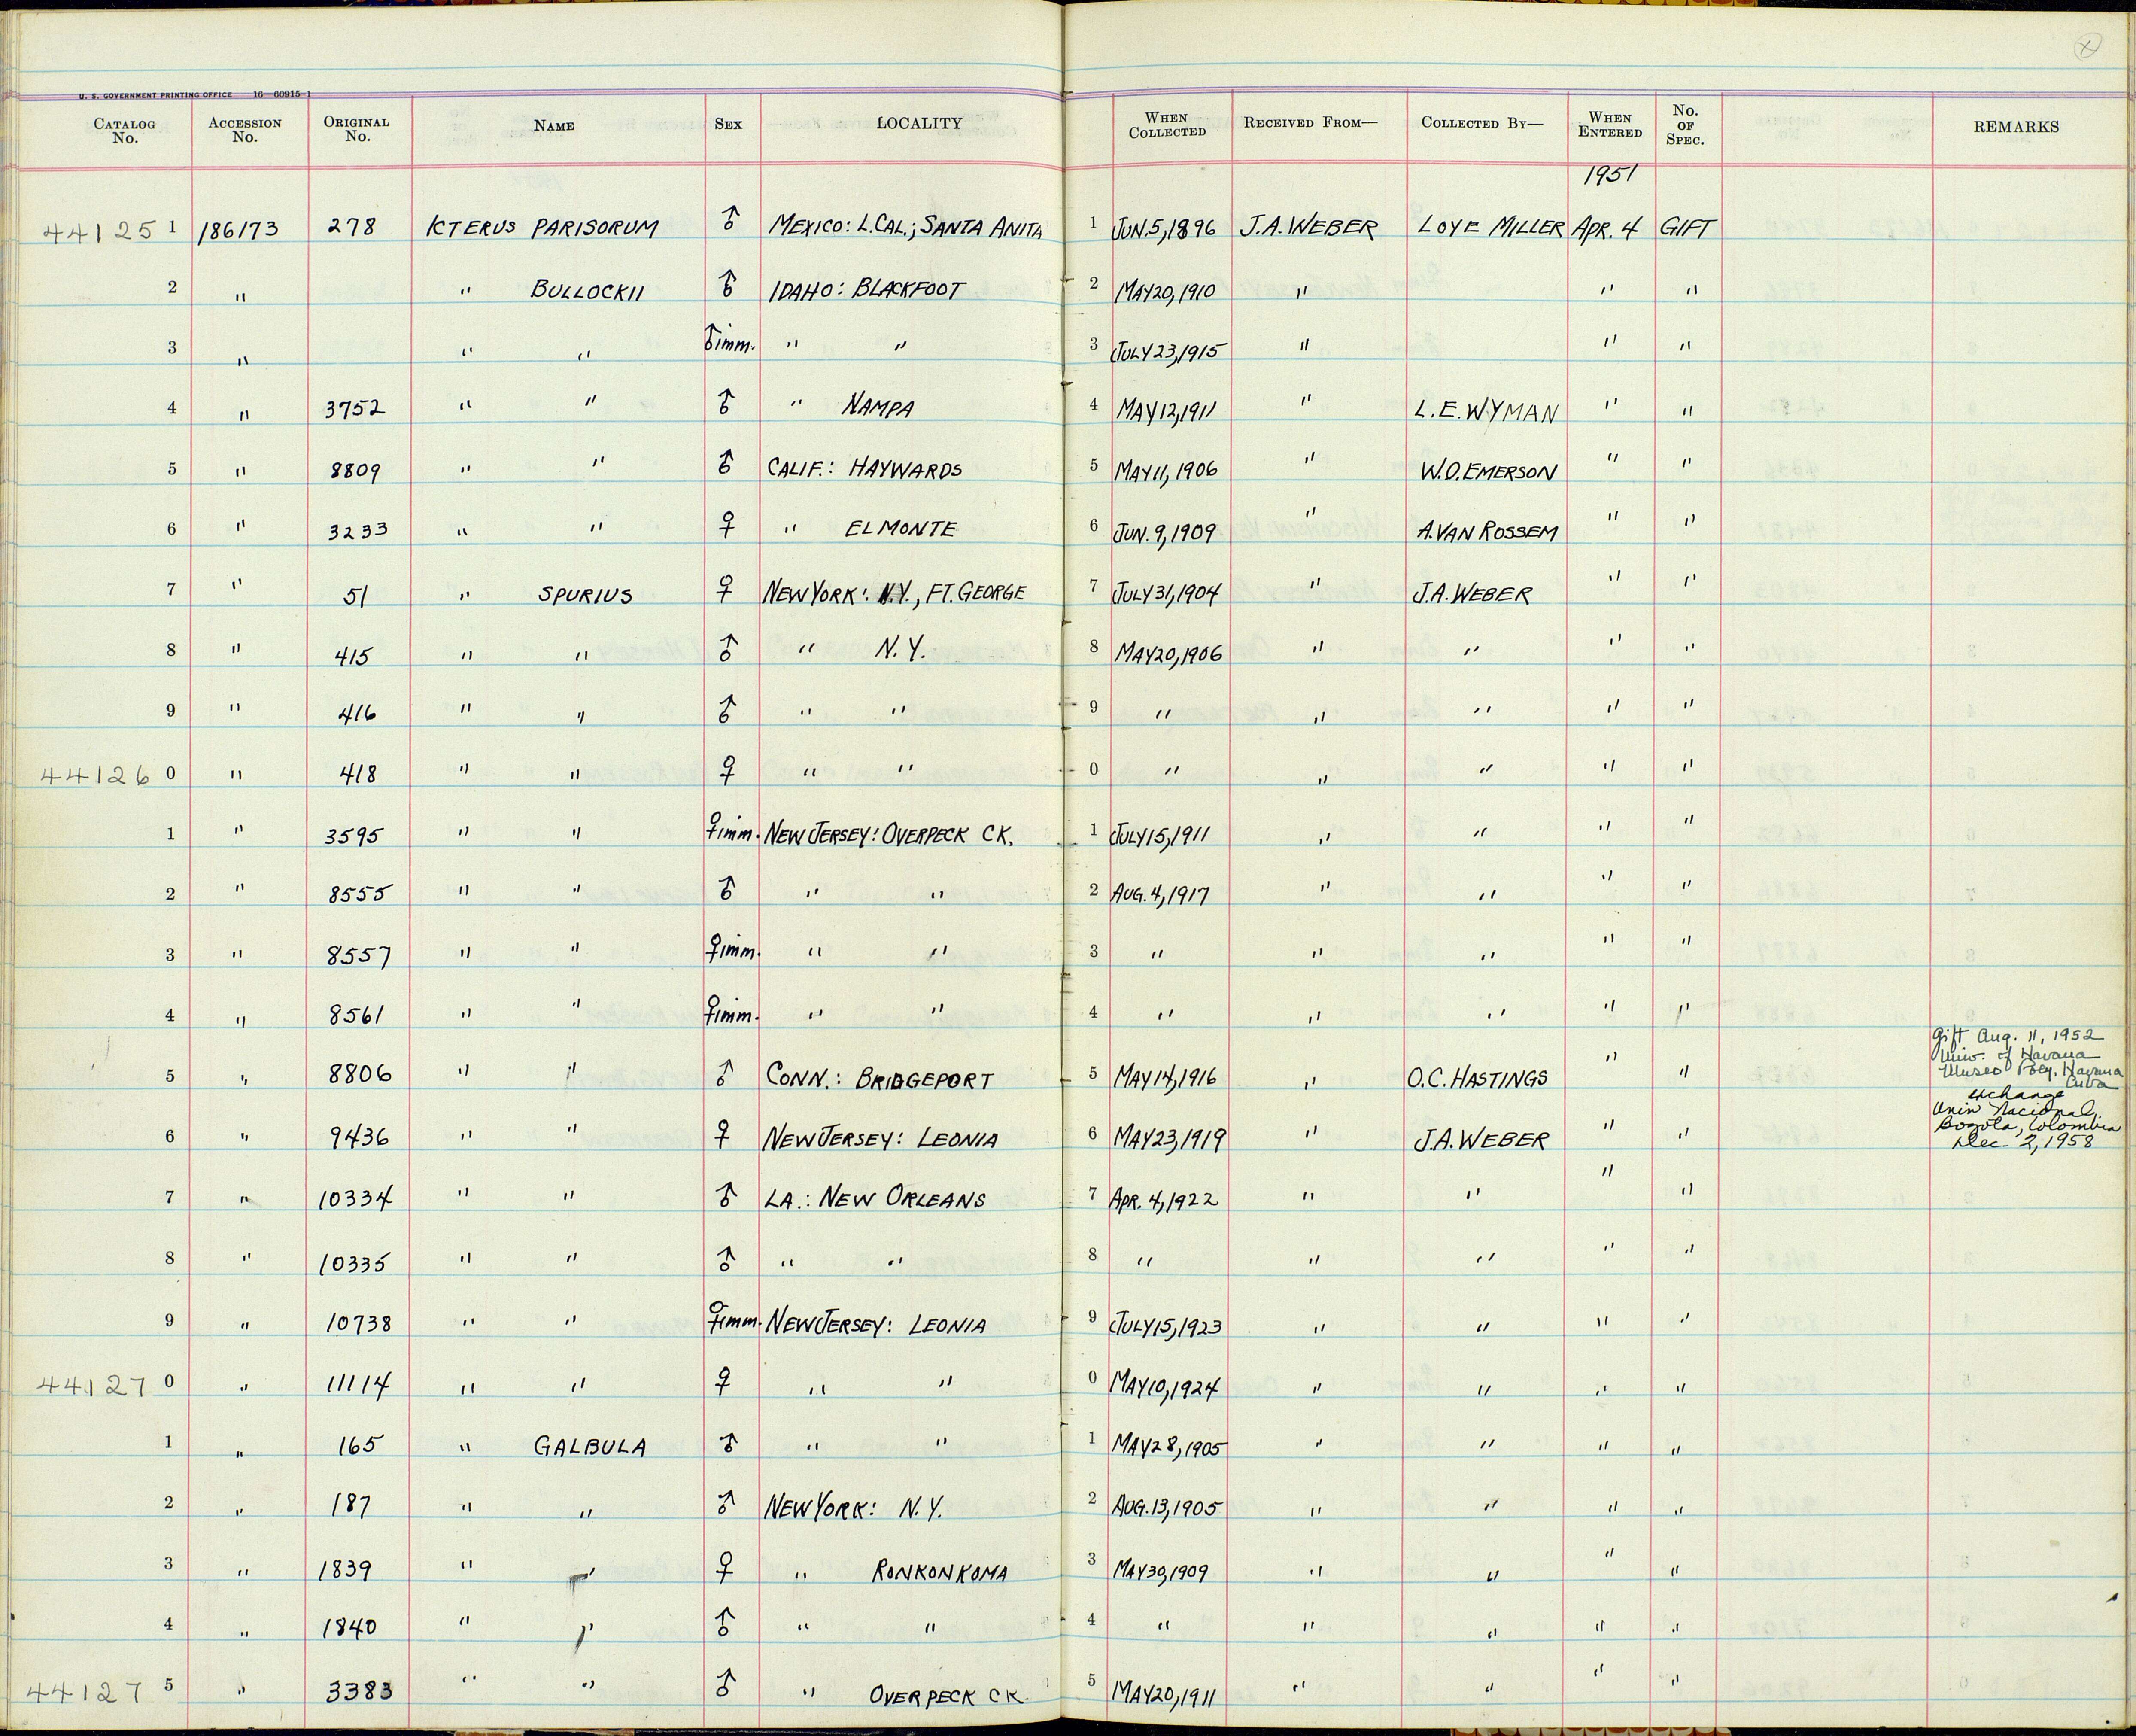 U. S. GOVERNMENT PRINTING OFFICE 16—60915-1
CATALOG No. ACCESSION No. ORIGINAL No. NAME SEX LOCALITY WHEN COLLECTED RECEIVED FROM— COLLECTED BY— WHEN ENTERED No. OF SPEC. REMARKS
1951
44125 1 186173 278 ICTERUS PARISORUM ♂ MEXICO: L. CAL.; SANTA ANITA 1 JUN. 5, 1896 J.A. WEBER LOYE MILLER APR. 4 GIFT
2 " " BULLOCKII ♂ IDAHO: BLACKFOOT 2 MAY 20, 1910 " " "
3 " " " ♂ imm. " " 3 JULY 23, 1915 " " "
4 " 3752 " " ♂ " NAMPA 4 MAY 12, 1911 " L. E. WYMAN " "
5 " 8809 " " ♂ CALIF.: HAYWARDS 5 MAY 11, 1906 " W.O. EMERSON " "
6 " 3233 " " ♀ " EL MONTE 6 JUN. 9, 1909 " A. VAN ROSSEM " "
7 " 51 " SPURIUS ♀ NEW YORK: N.Y., FT. GEORGE 7 JULY 31, 1904 " J.A. WEBER " "
8 " 415 " " ♂ " N.Y. 8 MAY 20, 1906 " " " "
9 " 416 " " ♂ " " 9 " " " " "
44126 0 " 418 " " ♀ " " 0 " " " " "
1 " 3595 " " ♀ imm. NEW JERSEY: OVERPECK CK. 1 JULY 15, 1911 " " " "
2 " 8555 " " ♂ " " 2 AUG. 4, 1917 " " " "
3 " 8557 " " ♀ imm. " " 3 " " " " "
4 " 8561 " " ♀ imm. " " 4 " " " " "
Gift Aug. 11, 1952
Univ. of Havana
Museo Poey, Havana
Cuba
5 " 8806 " " ♂ CONN.: BRIDGEPORT 5 MAY 14, 1916 " O.C. HASTINGS " "
exchange
Univ Nacional,
Bogota, Colombia
Dec 2, 1958
6 " 9436 " " ♀ NEW JERSEY: LEONIA 6 MAY 23, 1919 " J.A. WEBER " "
7 " 10334 " " ♂ LA.: NEW ORLEANS 7 APR. 4, 1922 " " " "
8 " 10335 " " ♂ " " 8 " " " " "
9 " 10738 " " ♀ imm. NEW JERSEY: LEONIA 9 JULY 15, 1923 " " " "
44127 0 " 11114 " " ♀ " " 0 MAY 10, 1924 " " " "
1 " 165 " GALBULA ♂ " " 1 MAY 28, 1905 " " " "
2 " 187 " " ♂ NEW YORK: N.Y. 2 AUG. 13, 1905 " " " "
3 " 1839 " " ♀ " RONKONKOMA 3 MAY 30, 1909 " " " "
4 " 1840 " " ♂ " " 4 " " " " "
44127 5 " 3383 " " ♂ " OVERPECK CK. 5 MAY 20, 1911 " " " "